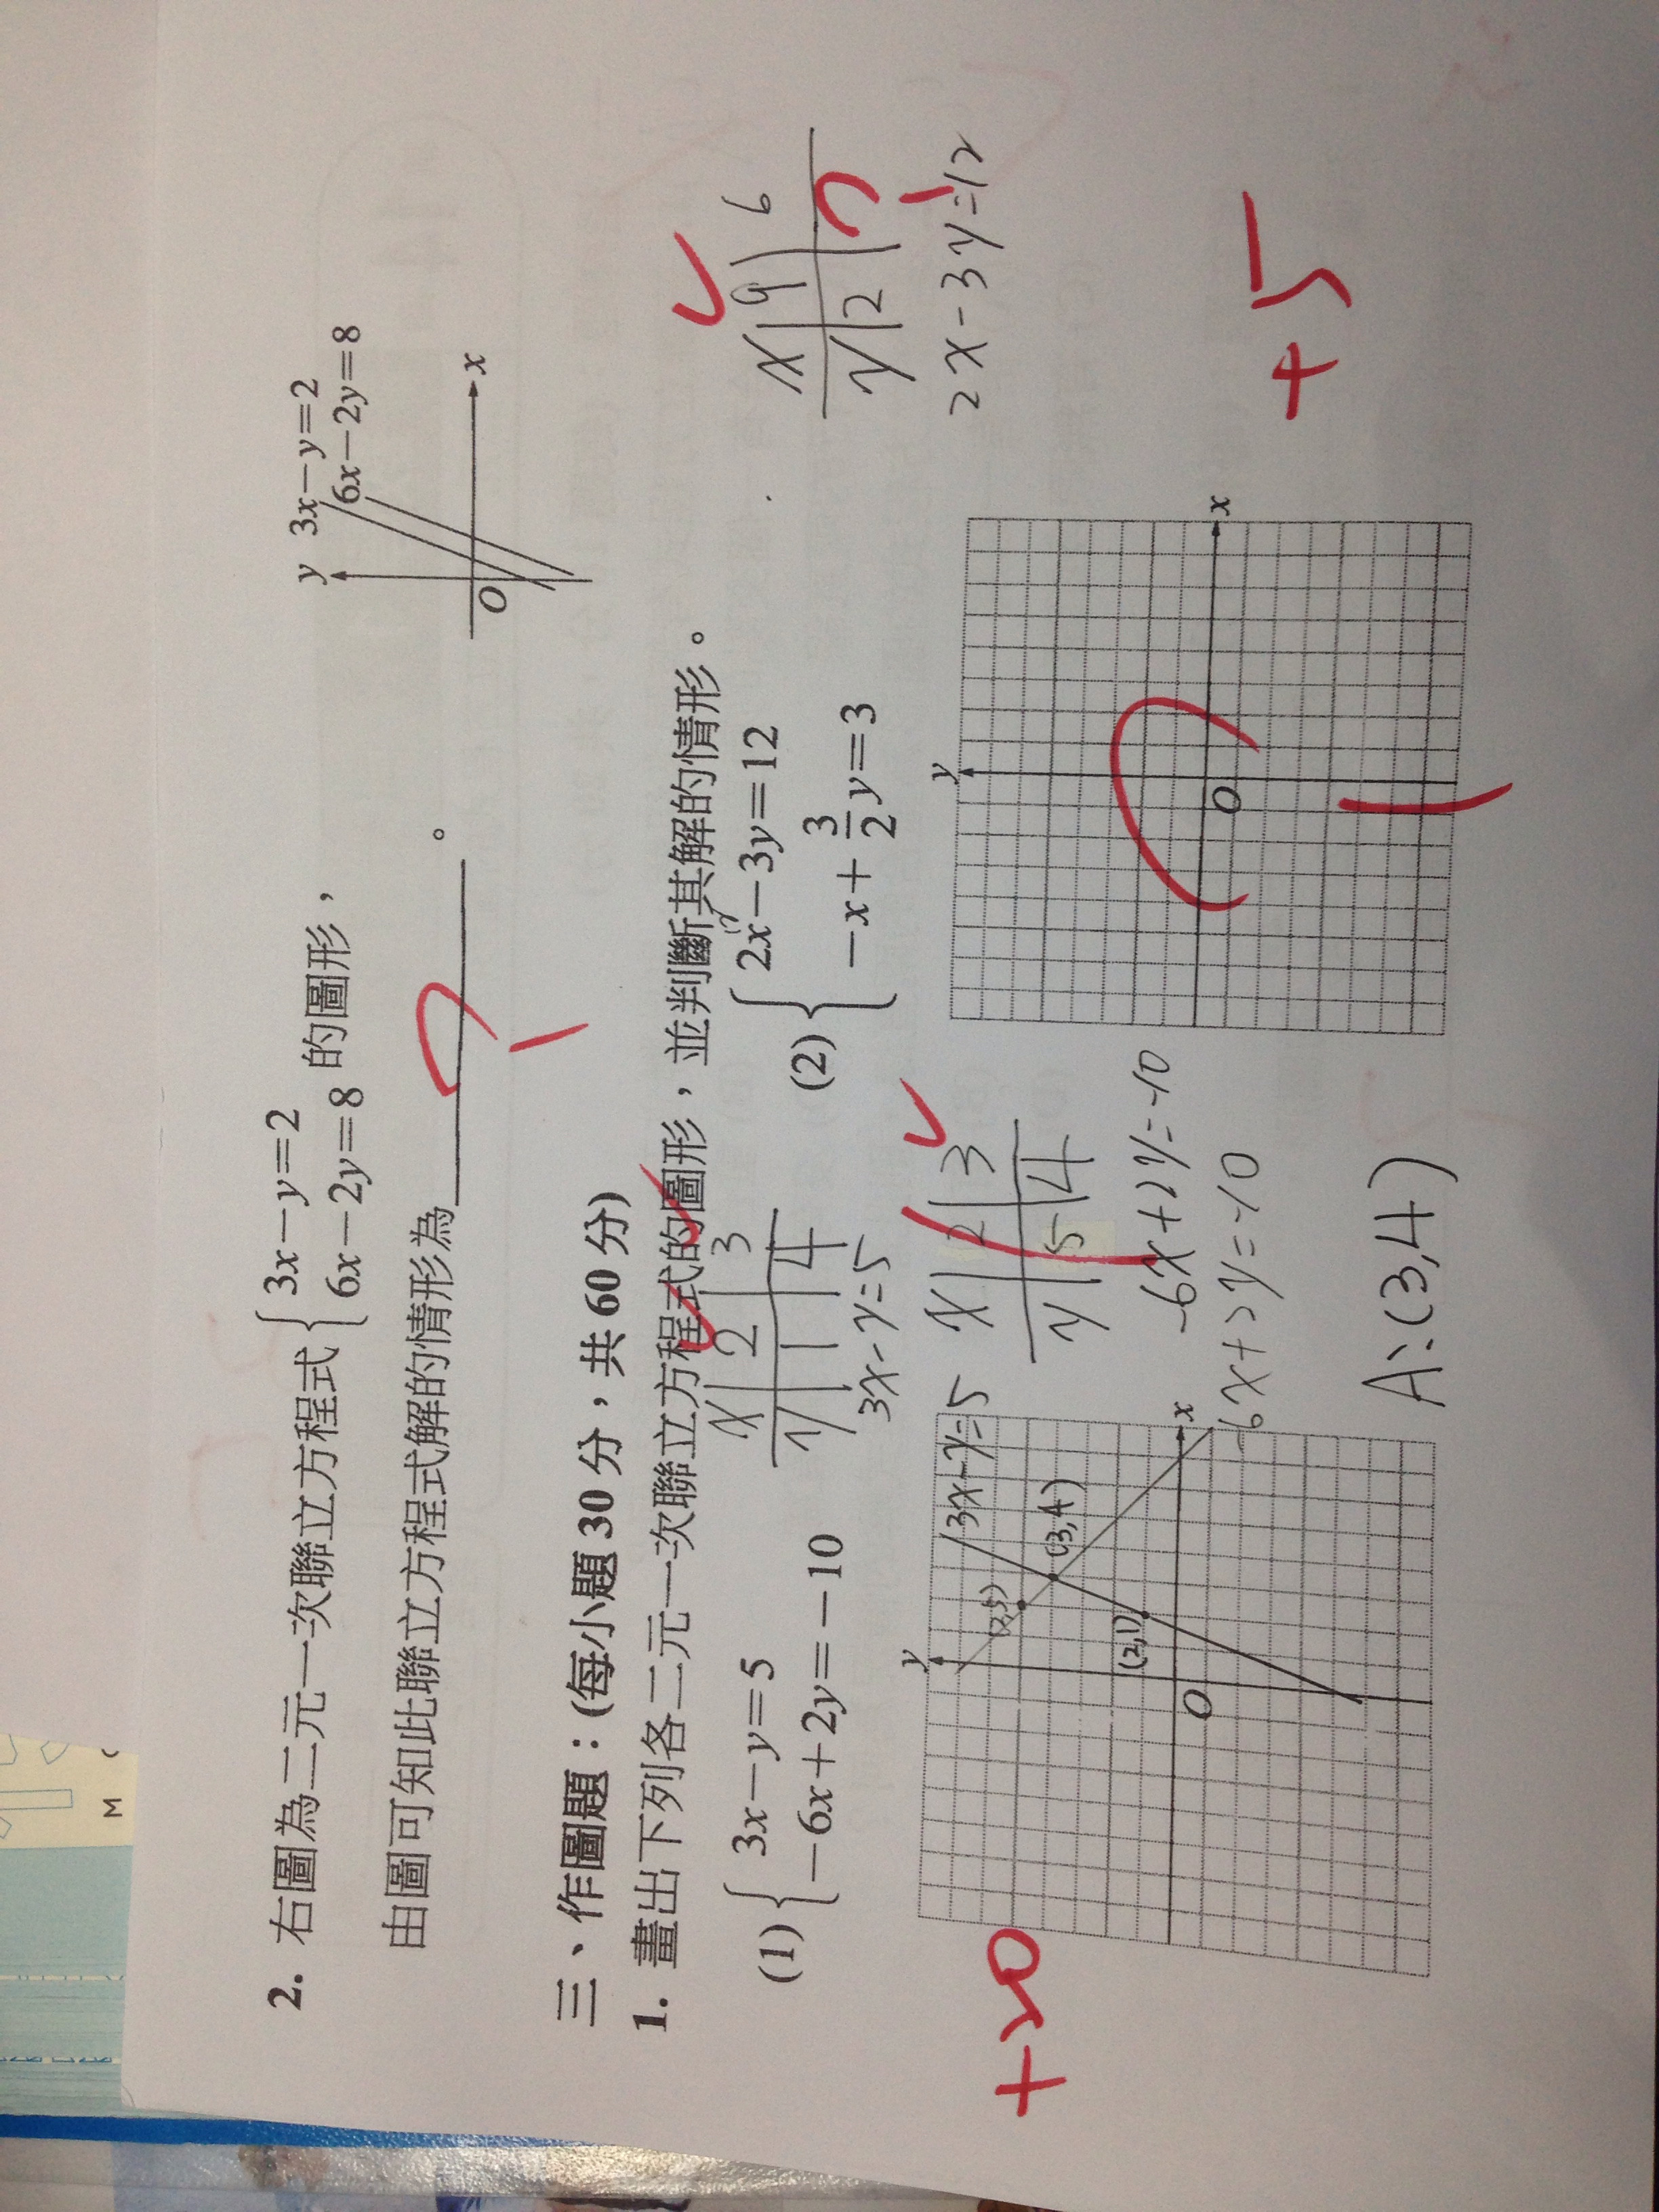 2. 右圖為二元一次聯立方程式 { 3x－y＝2
6x－2y＝8 的圖形，
由圖可知此聯立方程式解的情形為 。
y 3x－y＝2
6x－2y＝8
O x
三、作圖題：(每小題 30 分，共 60 分)
1. 畫出下列各二元一次聯立方程式的圖形，並判斷其解的情形。
(1) { 3x－y＝5
－6x＋2y＝－10
x 2 3
y 1 4
3x-y=5
y
3x-y=5
(2,5)
(3,4)
(2,1)
O x
x 2 3
y 5 4
-6x+2y=-10
-6x+2y=-10
A:(3,4)
+20
(2) { 2x－3y＝12
－x＋3/2y＝3
x 9 6
y 2
2x-3y=12
y
O x
+5
M